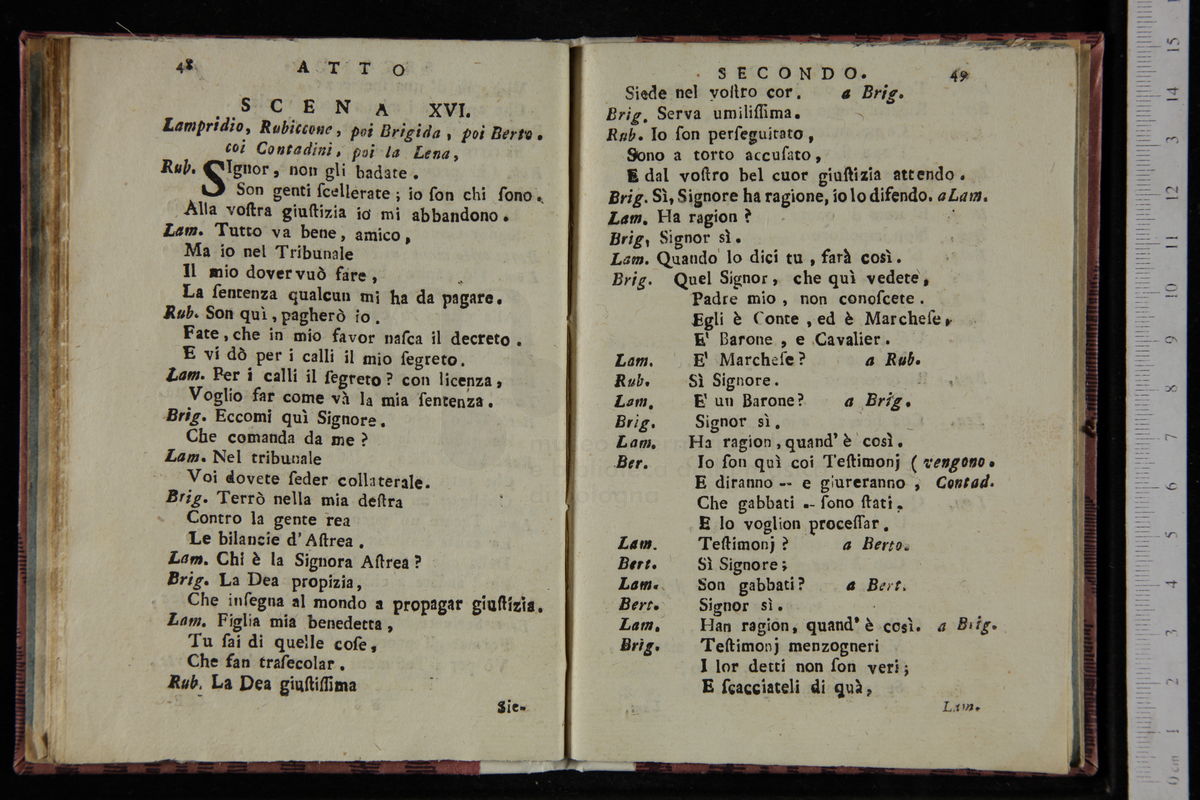 48 ATTO
SCENA XVI.
Lampridio, Rubiccone, poi Brigida, poi Berto.
coi Contadini, poi la Lena,
Rub. SIgnor, non gli badate.
Son genti ſcellerate; io ſon chi ſono.
Alla voſtra giuſtizia io mi abbandono.
Lam. Tutto va bene, amico,
Ma io nel Tribunale
Il mio dover vuò fare,
La ſentenza qualcun mi ha da pagare.
Rub. Son quì, pagherò io.
Fate, che in mio favor naſca il decreto.
E vi dò per i calli il mio ſegreto.
Lam. Per i calli il ſegreto? con licenza,
Voglio far come và la mia ſentenza.
Brig. Eccomi quì Signore.
Che comanda da me?
Lam. Nel tribunale
Voi dovete ſeder collaterale.
Brig. Terrò nella mia deſtra
Contro la gente rea
Le bilancie d'Aſtrea.
Lam. Chi è la Signora Aſtrea?
Brig. La Dea propizia,
Che inſegna al mondo a propagar giuſtizia.
Lam. Figlia mia benedetta,
Tu ſai di quelle coſe,
Che fan traſecolar.
Rub. La Dea giuſtiſſima
Sie-
SECONDO. 49
Siede nel voſtro cor. a Brig.
Brig. Serva umiliſſima.
Rub. Io ſon perſeguitato,
Sono a torto accuſato,
E dal voſtro bel cuor giuſtizia attendo.
Brig. Sì, Signore ha ragione, io lo difendo. a Lam.
Lam. Ha ragion?
Brig, Signor sì.
Lam. Quando lo dici tu, ſarà così.
Brig. Quel Signor, che quì vedete,
Padre mio, non conoſcete.
Egli è Conte, ed è Marcheſe,
E' Barone, e Cavalier.
Lam. E' Marcheſe? a Rub.
Rub. Sì Signore.
Lam. E' un Barone? a Brig.
Brig. Signor sì.
Lam. Ha ragion, quand' è così.
Ber. Io ſon quì coi Teſtimonj (vengono.
E diranno -- e giureranno, Contad.
Che gabbati -- ſono ſtati,
E lo voglion proceſſar.
Lam. Teſtimonj? a Berto.
Bert. Sì Signore;
Lam. Son gabbati? a Bert.
Bert. Signor sì.
Lam. Han ragion, quand' è così. a Brig.
Brig. Teſtimonj menzogneri
I lor detti non ſon veri;
E ſcacciateli di quà,
Lam.